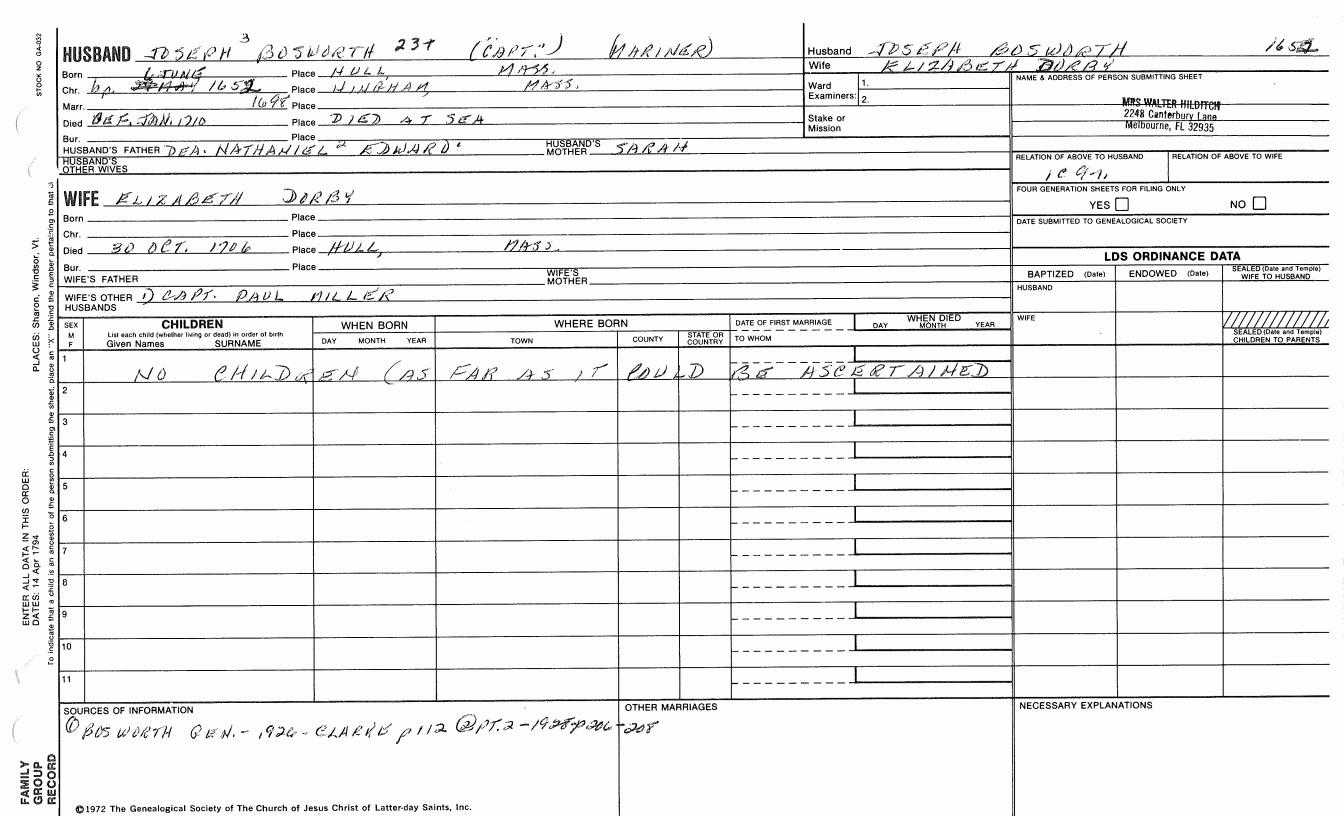 STOCK NO GA-032
HUSBAND JOSEPH 3 BOSWORTH 23+ ("CAPT.") (MARINER)
Born 6 JUNE Place HULL, MASS.
Chr. bp. MAY 1652 Place HINGHAM, MASS.
Marr. 1698 Place
Died BEF. JAN. 1710 Place DIED AT SEA
Bur. Place
HUSBAND'S FATHER DEA. NATHANIEL 2 EDWARD 1 HUSBAND'S MOTHER SARAH
HUSBAND'S OTHER WIVES
WIFE ELIZABETH DORBY
Born Place
Chr. Place
Died 30 OCT. 1706 Place HULL, MASS.
Bur. Place
WIFE'S FATHER WIFE'S MOTHER
WIFE'S OTHER HUSBANDS 1) CAPT. PAUL MILLER
Husband JOSEPH BOSWORTH 1652
Wife ELIZABETH DORBY
Ward 1.
Examiners: 2.
Stake or Mission
NAME & ADDRESS OF PERSON SUBMITTING SHEET
MRS WALTER HILDITCH
2248 Canterbury Lane
Melbourne, FL 32935
RELATION OF ABOVE TO HUSBAND RELATION OF ABOVE TO WIFE
1C 9-1,
FOUR GENERATION SHEETS FOR FILING ONLY
YES NO
DATE SUBMITTED TO GENEALOGICAL SOCIETY
LDS ORDINANCE DATA
BAPTIZED (Date) ENDOWED (Date) SEALED (Date and Temple) WIFE TO HUSBAND
HUSBAND
WIFE
SEALED (Date and Temple) CHILDREN TO PARENTS
SEX M F CHILDREN WHEN BORN WHERE BORN DATE OF FIRST MARRIAGE WHEN DIED
List each child (whether living or dead) in order of birth
Given Names SURNAME DAY MONTH YEAR TOWN COUNTY STATE OR COUNTRY TO WHOM DAY MONTH YEAR
1 NO CHILDREN (AS FAR AS IT COULD BE ASCERTAINED
2
3
4
5
6
7
8
9
10
11
SOURCES OF INFORMATION OTHER MARRIAGES NECESSARY EXPLANATIONS
① BOSWORTH GEN. - 1926 - CLARKE p 112 ② PT. 2 - 1928 - p 206 - 208
©1972 The Genealogical Society of The Church of Jesus Christ of Latter-day Saints, Inc.
FAMILY GROUP RECORD
ENTER ALL DATA IN THIS ORDER:
DATES: 14 Apr 1794 PLACES: Sharon, Windsor, Vt.
To indicate that a child is an ancestor of the person submitting the sheet, place an "X" behind the number pertaining to that